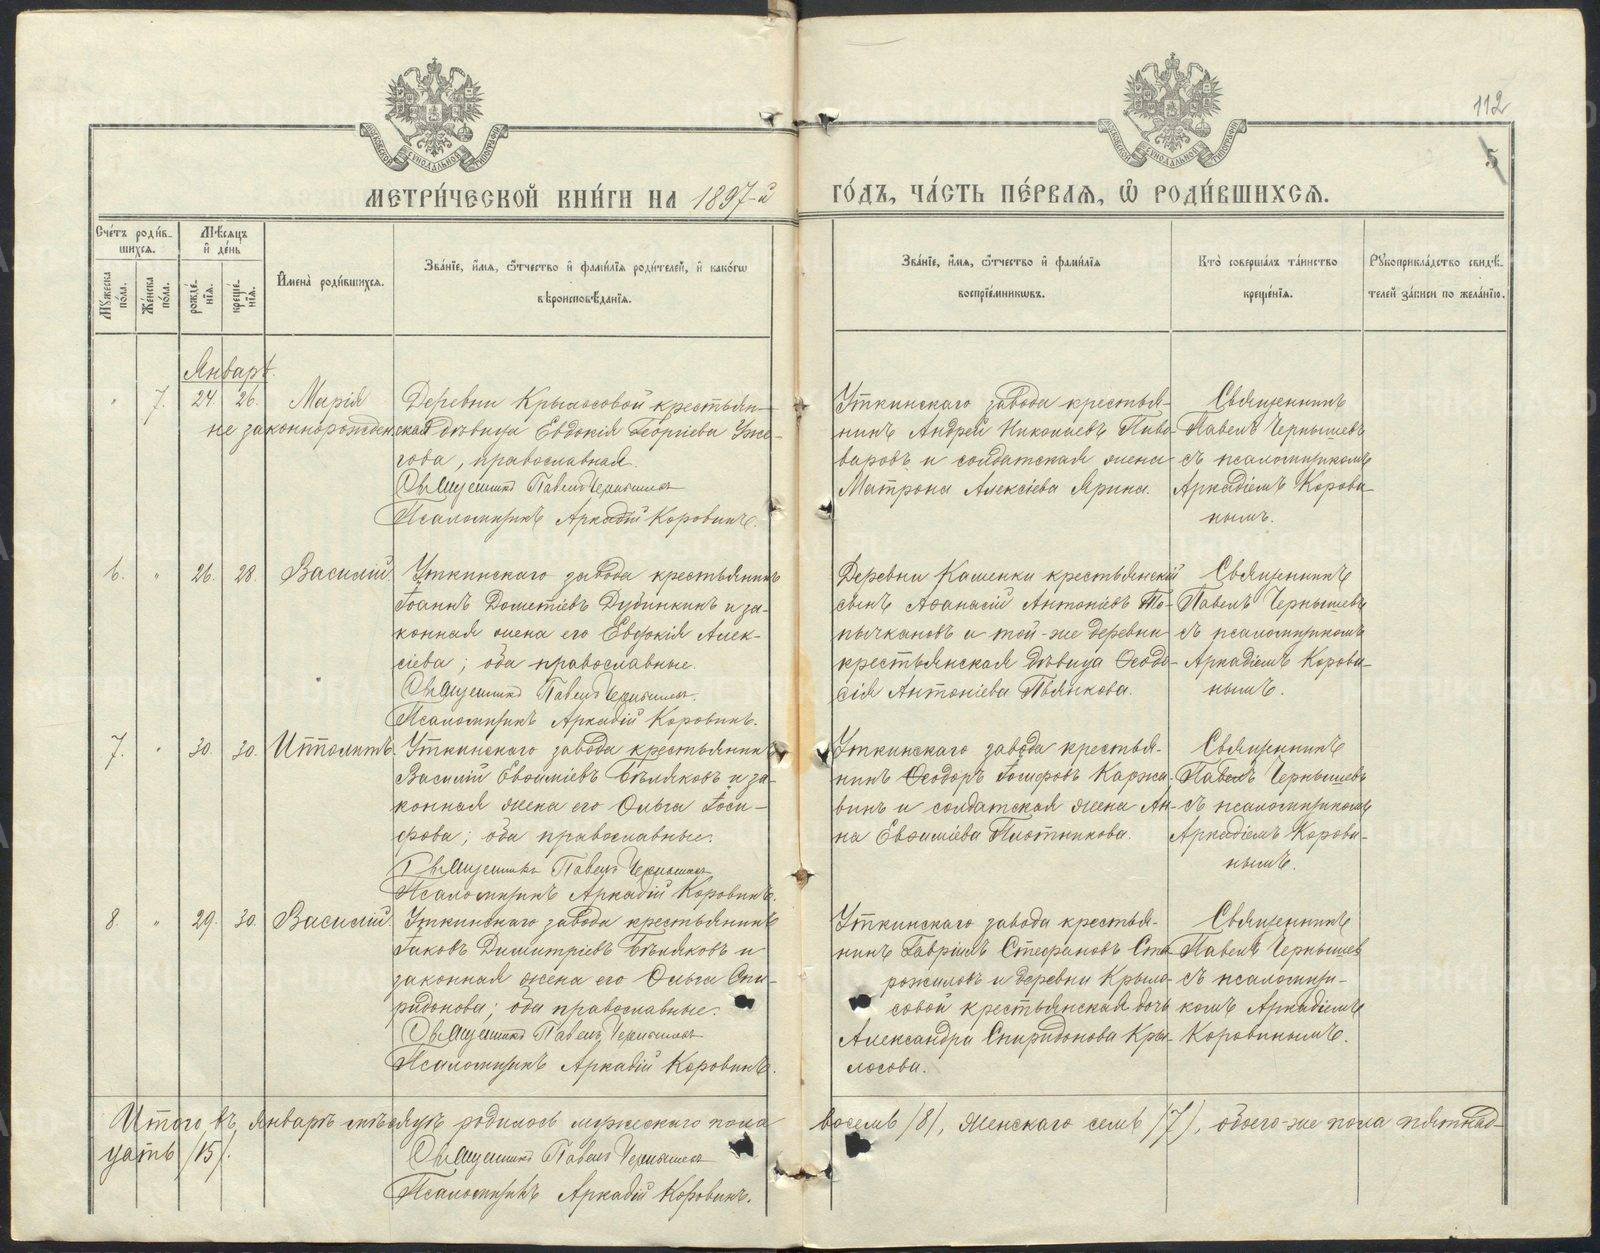 112
5
МОСКОВСКОЙ СѴНОДАЛЬНОЙ ТИПОГРАФІИ
МОСКОВСКОЙ СѴНОДАЛЬНОЙ ТИПОГРАФІИ
МЕТРИ́ЧЕСКОЙ КНИ́ГИ НА 1897-й
ГО́ДЪ, ЧА́СТЬ ПЕ́РВАЯ, Ѿ РОДИ́ВШИХСЯ.
Сче́тъ роди́в-
шихся.
Мѣ́сяцъ
и де́нь
Му́жеска пола.
Же́нска пола.
рожде́-нія.
креще́-нія.
И́мена̀ роди́вшихся.
Зва́ніе, и́мя, ѻ҆́тчество и фами́лія роди́телей, и како́гѡ
вѣроисповѣ́данія.
Зва́ніе, и́мя, ѻ҆́тчество и фами́лія
воспріе́мникѡвъ.
Кто̀ соверша́лъ та́инство
креще́нія.
Рукоприкла́дство свидѣ́-
телей за́писи по жела́нію.
Январь.
" 7. 24. 26. Марія
незаконнорожден.
Деревни Крылосовой крестьян-
ская дѣвица Евдокія Георгіева Уже-
гова, православная.
Священникъ Павелъ Чернышевъ
Псаломщикъ Аркадій Коровинъ.
Уткинскаго завода крестья-
нинъ Андрей Николаевъ Пиво-
варовъ и солдатская жена
Матрона Алексіева Ярина.
Священникъ
Павелъ Чернышевъ
съ псаломщикомъ
Аркадіемъ Корови-
нымъ.
6. " 26. 28. Василій.
Уткинскаго завода крестьянинъ
Іоаннъ Дометіевъ Дубинкинъ и за-
конная жена его Евдокія Алек-
сіева; оба православные.
Священникъ Павелъ Чернышевъ.
Псаломщикъ Аркадій Коровинъ.
Деревни Каменки крестьянскій
сынъ Аѳанасій Антоніевъ То-
пычкановъ и той-же деревни
крестьянская дѣвица Ѳеодо-
сія Антоніева Пьянкова.
Священникъ
Павелъ Чернышевъ
съ псаломщикомъ
Аркадіемъ Корови-
нымъ.
7. " 30. 30. Ипполитъ.
Уткинскаго завода крестьянинъ
Василій Евѳиміевъ Бѣляковъ и за-
конная жена его Ольга Іоси-
фова; оба православные.
Священникъ Павелъ Чернышевъ
Псаломщикъ Аркадій Коровинъ.
Уткинскаго завода крестья-
нинъ Ѳеодоръ Іосифовъ Каржа-
винъ и солдатская жена Ан-
на Евѳиміева Плотникова.
Священникъ
Павелъ Чернышевъ
съ псаломщикомъ
Аркадіемъ Корови-
нымъ.
8 " 29. 30. Василій.
Уткинскаго завода крестьянинъ
Іаковъ Димитріевъ Бѣляковъ и
законная жена его Ольга Спи-
ридонова; оба православные.
Священникъ Павелъ Чернышевъ
Псаломщикъ Аркадій Коровинъ.
Уткинскаго завода крестья-
нинъ Гавріилъ Стефановъ Ста-
рожиловъ и деревни Крыло-
совой крестьянская дочь
Александра Спиридонова Кры-
лосова.
Священникъ
Павелъ Чернышев
съ псаломщи-
комъ Аркадіемъ
Коровинымъ.
Итого въ Январѣ мѣсяцѣ родилось мужескаго пола восемь /8/, женскаго семь /7/, обоего-же пола пятнад-
цать /15/.
Священникъ Павелъ Чернышевъ
Псаломщикъ Аркадій Коровинъ.